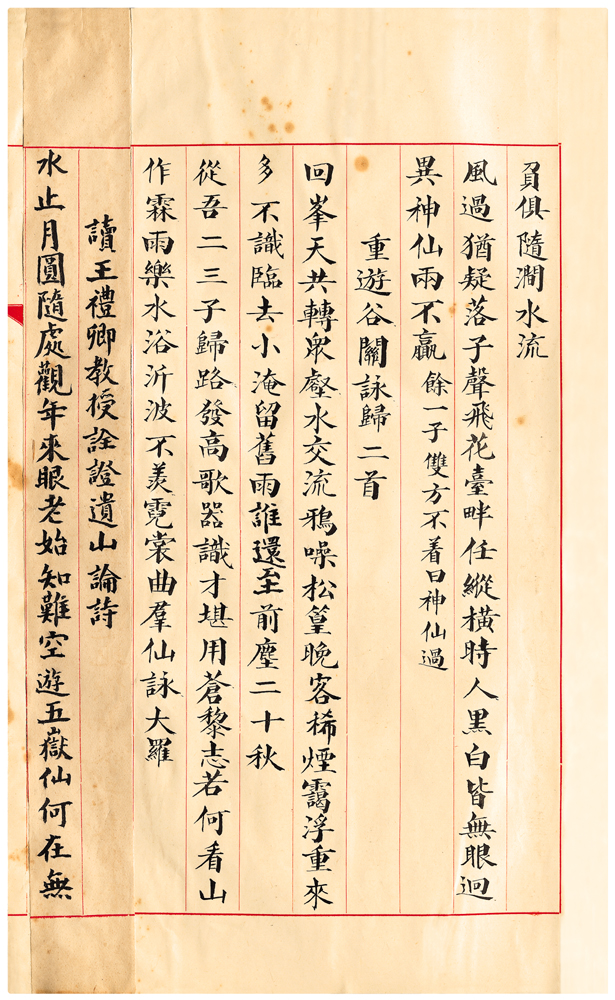 負俱隨澗水流
風過猶疑落子聲飛花臺畔任縱橫時人黑白皆無眼迥
異神仙兩不贏 餘一子雙方不着曰神仙過
重遊谷關詠歸二首
回峯天共轉眾壑水交流鴉噪松篁晚客稀煙靄浮重來
多不識臨去小淹留舊雨誰還至前塵二十秋
從吾二三子歸路發高歌器識才堪用蒼黎志若何看山
作霖雨樂水浴沂波不羨霓裳曲羣仙詠大羅
讀王禮卿教授詮證遺山論詩
水止月圓隨處觀年來眼老始知難空遊五嶽仙何在無